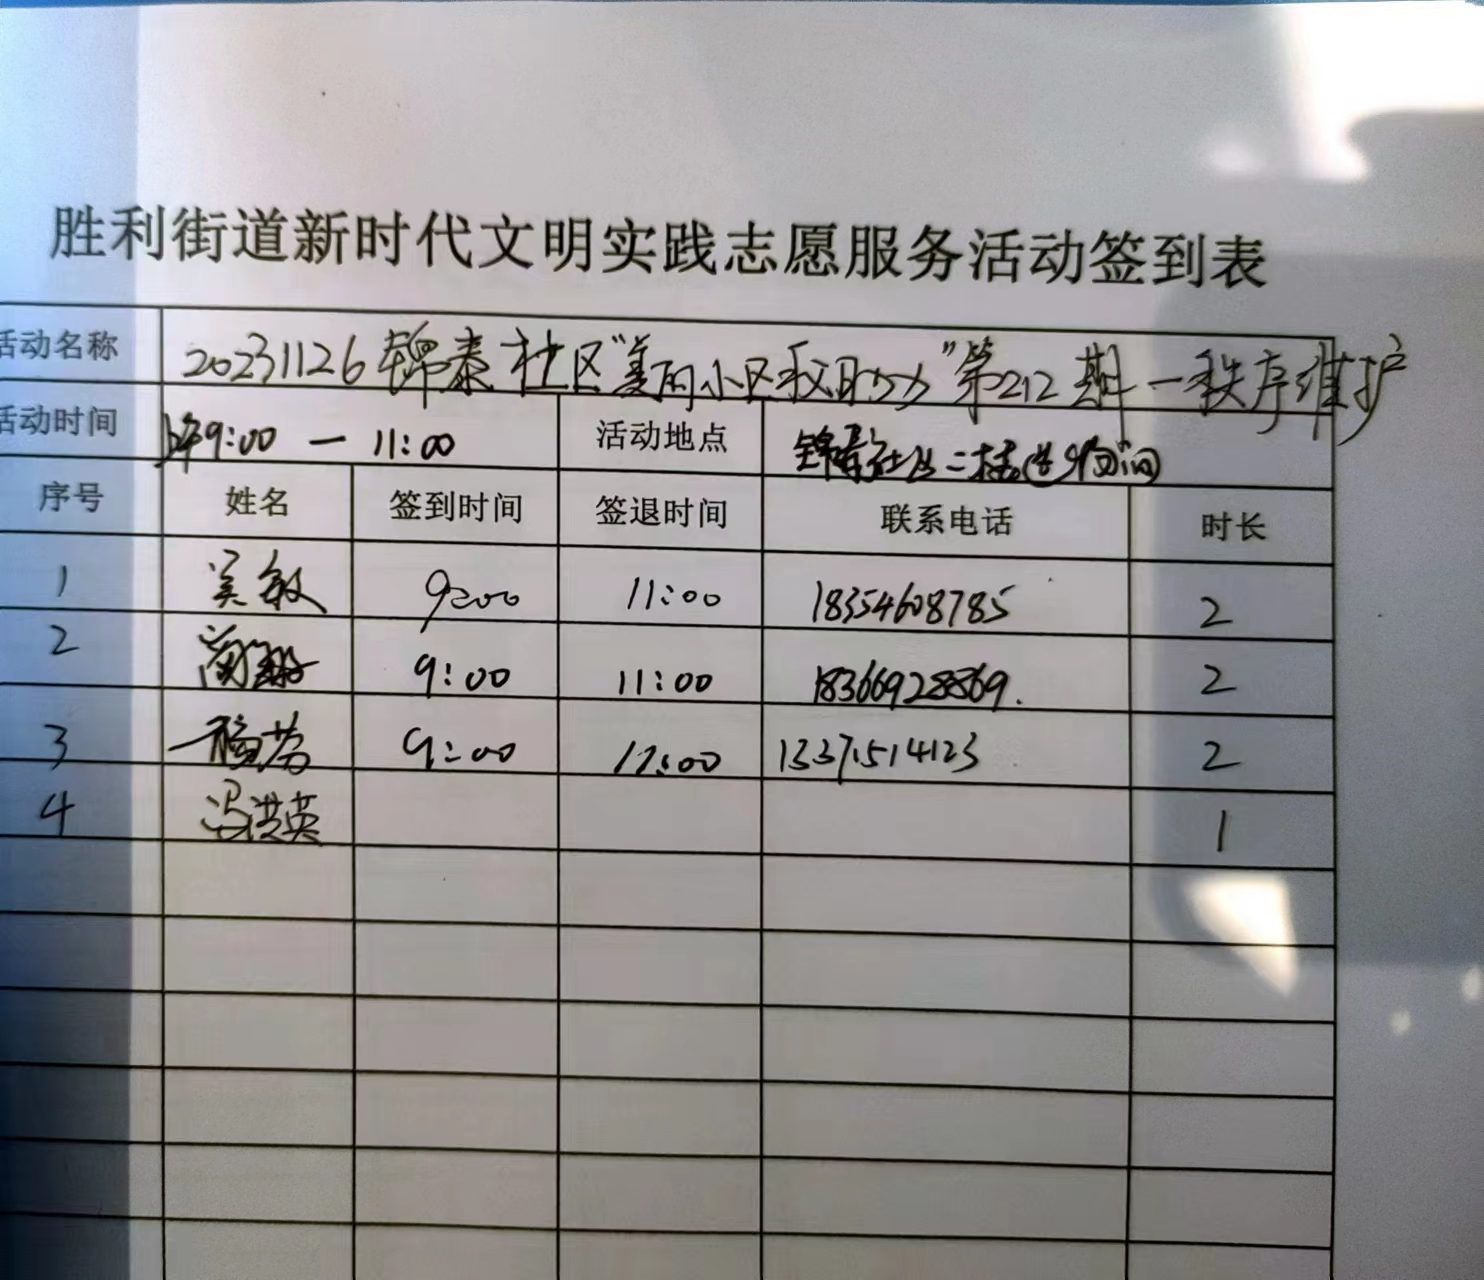 胜利街道新时代文明实践志愿服务活动签到表
活动名称 20231126锦泰社区"美丽小区我助力"第212期—秩序维护
活动时间 上午9:00 — 11:00 活动地点 锦泰社区二
序号 姓名 签到时间 签退时间 联系电话 时长
1 吴敏 9:00 11:00 18354608785 2
2 商 9:00 11:00 18366928869. 2
3 杨芳 9:00 11:00 13371514123 2
4 冯洪英 1